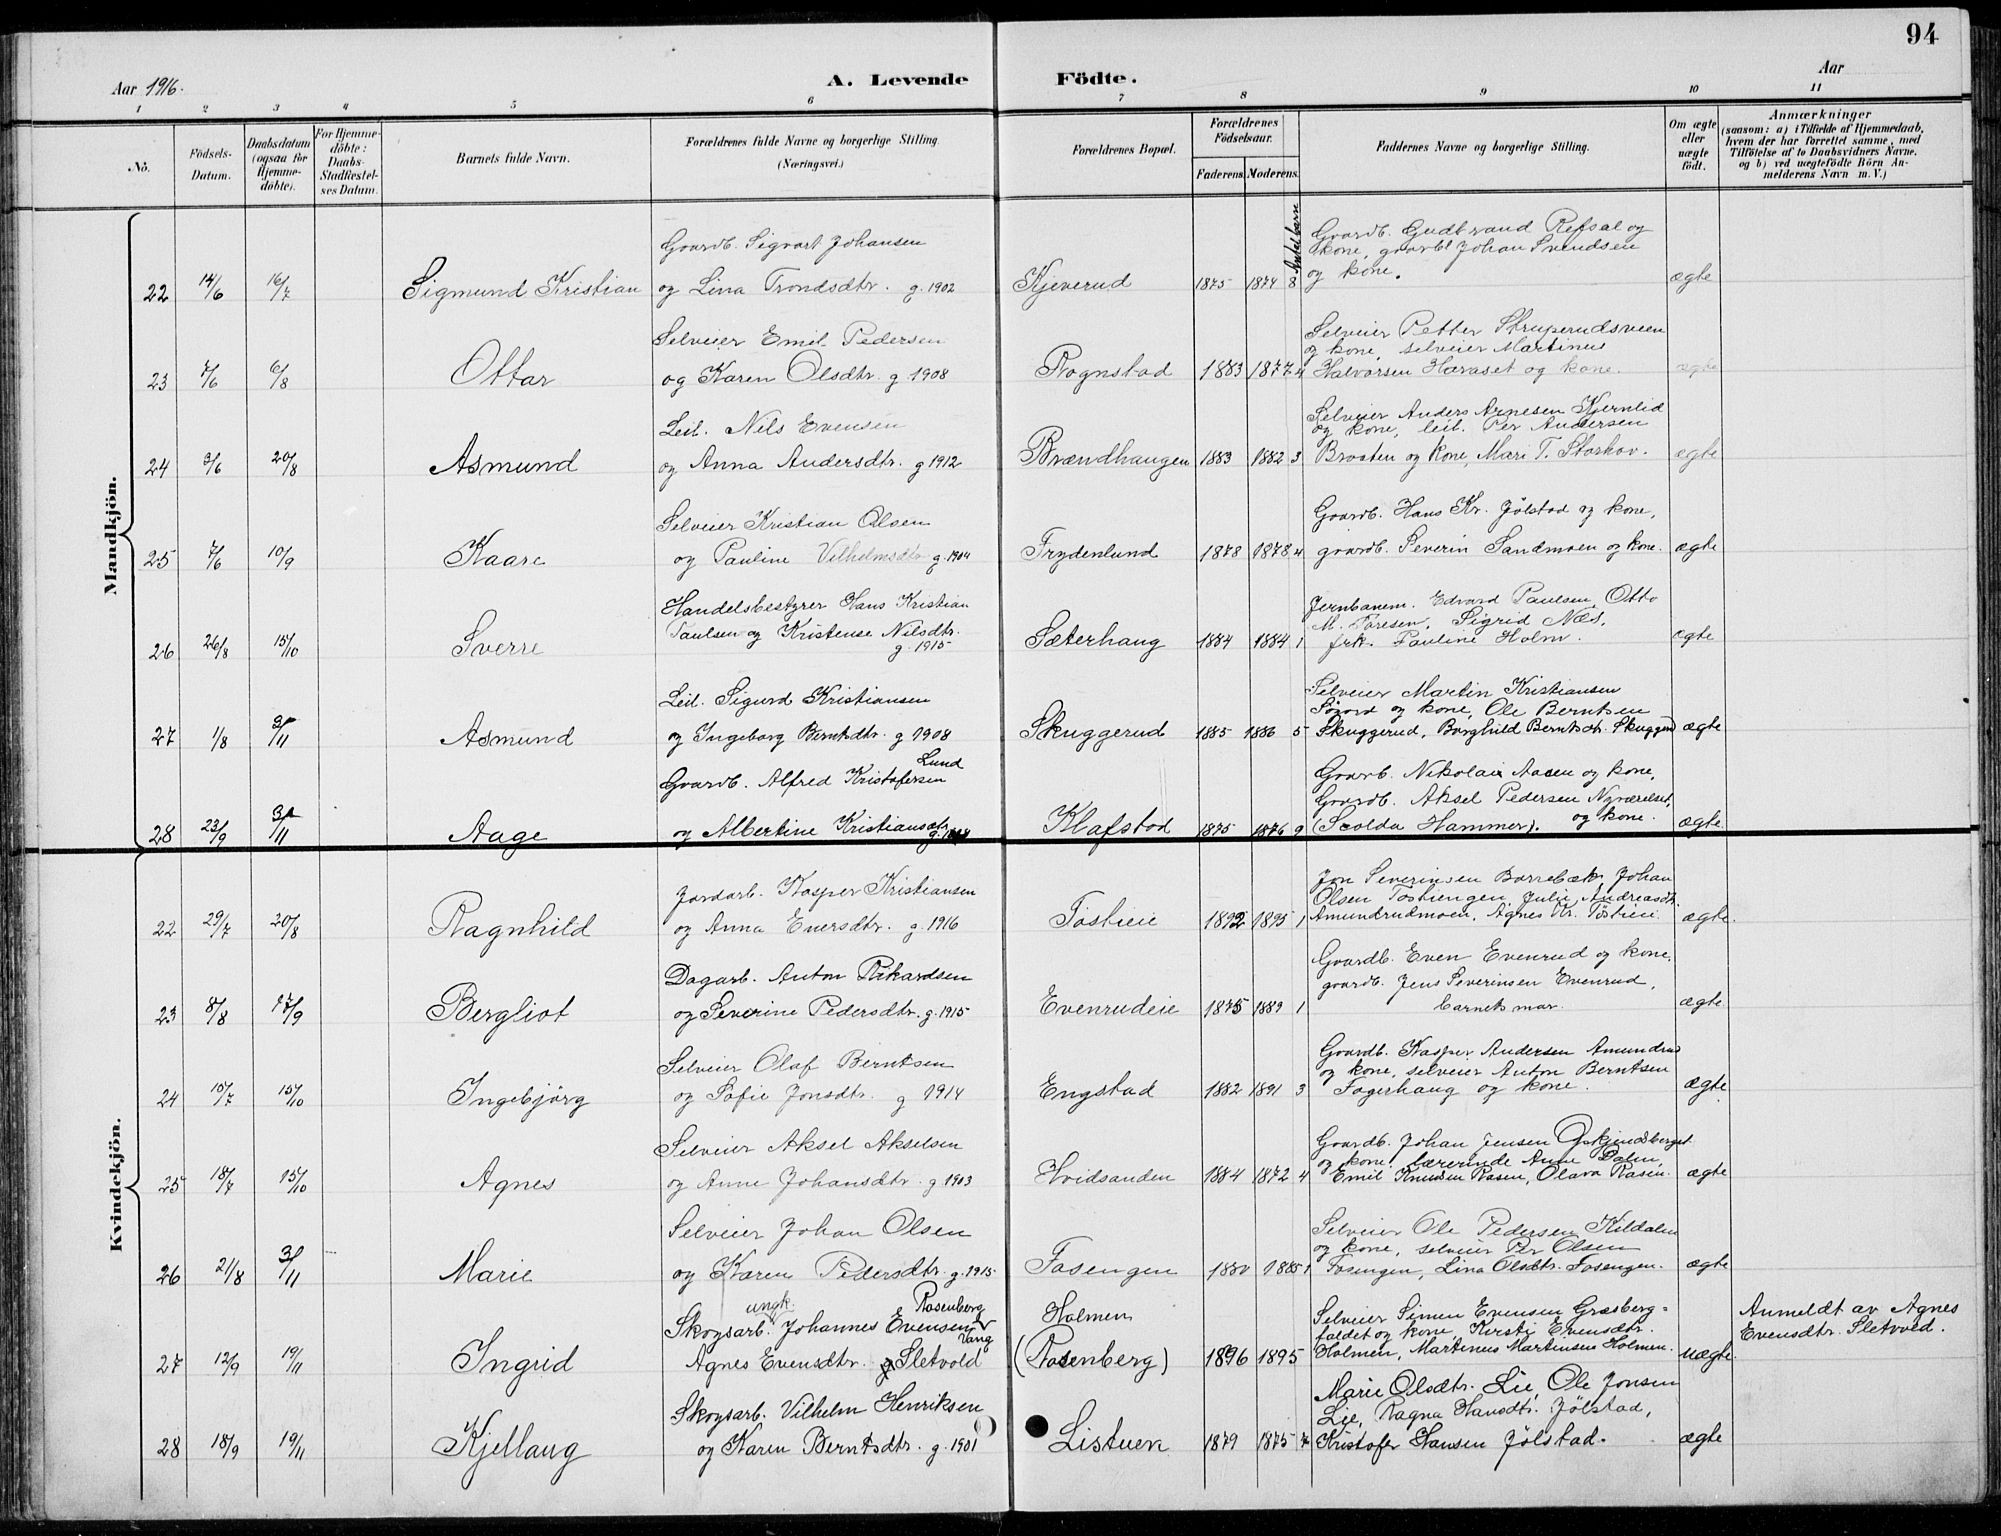 94
Aar 1916.
A. Levende Födte.
Aar
1 2 3 4 5 6 7 8 9 10 11
No.
Födsels-Datum.
Daabsdatum (ogsaa for Hjemme-döbte).
For Hjemme-döbte: Daabs-Stadfæstel-ses Datum.
Barnets fulde Navn.
Forældrenes fulde Navne og borgerlige Stilling. (Næringsvei.)
Forældrenes Bopæl.
Forældrenes Födselsaar.
Faderens. Moderens.
Faddernes Navne og borgerlige Stilling.
Om ægte eller uægte födt.
Anmærkninger
(saasom: a) i Tilfælde af Hjemmedaab, hvem der har forrettet samme, med Tilföielse af to Daabsvidners Navne. og b) ved uægtefödte Börn An-melderens Navn m. V.)
Mandkjön.
Antal barn
Gaardb. Sigvart Johansen
Gaardb. Gudbrand Refsal og
kone, gaardb. Johan Svendsen
og kone.
22 14/6 16/7 Sigmund Kristian og Lina Trondsdtr. g. 1902 Kjeverud 1875 1874 8 ægte
Selveier Emil Pedersen
Selveier Petter Struperudsveen
og kone, selveier Martinus
23 7/6 6/8 Ottar og Karen Olsdtr. g 1908 Rognstad 1883 1877 4 Halvorsen Haraset og kone. ægte
Leil. Nils Evensen
Selveier Anders Arnesen Kjernlid
og kone, leil. Per Andersen
24 9/6 20/8 Asmund og Anna Andersdtr. g 1912 Brændhaugen 1883 1882 3 Braaten og kone, Mari T. Storhov. ægte
Selveier Kristian Olsen
Gaardb. Hans Kr. Jølstad og kone,
25 7/6 10/9 Kaare og Pauline Vilhelmsdtr g. 1904 Frydenlund 1878 1878 4 gaardb. Severin Sandmoen og kone. ægte
Handelsbestyrer Hans Kristian
Paulsen og Kristense Nilsdtr.
g. 1915
Jernbanem. Edvard Paulsen, Otto
M. Paresen, Sigrid Næs,
26 26/8 15/10 Sverre Sæterhaug 1884 1884 1 frk. Pauline Holm. ægte
Leil. Sigurd Kristiansen
Selveier Martin Kristiansen
og kone, Ole Berntsen
27 1/8 3/11 Asmund og Ingeborg Berntsdtr. g 1908 Skuggerud 1885 1886 5 Skuggerud, Borghild Berntsdtr. Skuggerud ægte
Lund
Gaardb. Alfred Kristofersen
Gaardb. Nikolai Aasen og kone,
Gaardb. Aksel Pedersen Nyværelset,
og kone.
28 23/9 3/11 Aage og Albertine Kristiansdtr. Klafstad 1875 1876 9 Hammer). ægte
Kvindekjön.
Jordarb. Kasper Kristiansen
Jon Severinsen Borrebæk, Johan
Olsen Tøstiengen, Julie Andreasdtr.
22 29/7 20/8 Ragnhild og Anna Enersdtr. g. 1916 Tøstieie 1892 1895 1 Amundrudmoen, Agnes Kr. Tøstieie ægte.
Dagarb. Anton Rikardsen
Gaardb. Even Evenrud og kone,
gaardb. Jens Severinsen Evenrud,
23 8/8 17/9 Bergliot og Severine Pedersdtr. g. 1915 Evenrudeie 1875 1889 1 barnets mor. ægte
Selveier Olaf Berntsen
Gaardb. Kasper Andersen Amundrud
og kone, selveier Anton Berntsen
24 10/7 15/10 Ingebjörg og Sofie Jonsdtr. g 1914 Engstad 1882 1891 3 Fagerhaug og kone. ægte
Selveier Aksel Akselsen
Gaardb. Johan Jensen
og kone, lærerinde Anne Dalen,
25 18/7 15/10 Agnes og Anne Johansdtr. g 1903 Hvidsanden 1884 1872 4 Emil Knudsen Rasen, Olava Rasen. ægte
Selveier Johan Olsen
Selveier Ole Pedersen Kildalen
og kone, selveier Per Olsen
26 21/8 3/11 Marie og Karen Pedersdtr. g. 1915 Fosengen 1880 1885 1 Fosengen, Lina Olsdtr. Fosengen. ægte
ungk. Rosenberg
Skogsarb. Johannes Evensen
Vang
Holmen
Selveier Simen Evensen Græsberg-
faldet og kone, Kirsti Evensdtr.
Anmeldt av Agnes
Evensdtr. Sletvold.
27 12/9 19/11 Ingrid Agnes Evensdtr. Sletvold (Rosenberg) 1896 1895 Holmen, Martinus Martinsen Holmen. uægte.
Skogsarb. Vilhelm Henriksen
Marie Olsdtr. Lie, Ole Jonsen
Lie, Ragna Hansdtr. Jølstad,
28 18/9 19/11 Kjellaug og Karen Berntsdtr. g. 1901 Listuen 1879 1875 7 Kristofer Hansen Jølstad. ægte